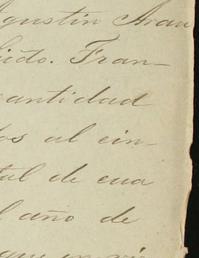 Agustin Aran
ido. Fran-
cantidad
os al cin-
tal de cua
l año de